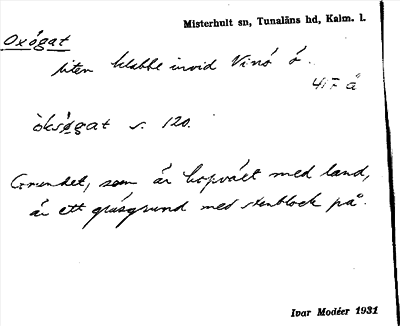 Misterhult sn, Tunaläns hd, Kalm. l.
Oxögat
liten klabbe invid Vinö ö.
4i7 å
òksø̀gat s. 120.
Grundet, som är hopväxt med land,
är ett gräsgrund med stenblock på.
Ivar Modéer 1931